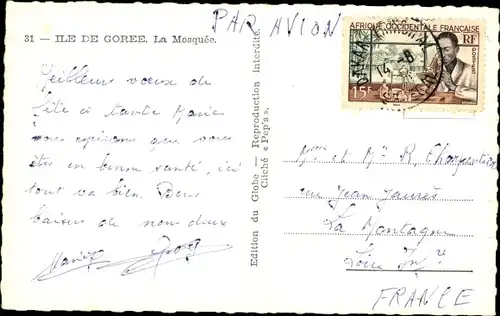 31 — ILE DE GOREE. La Mosquée.
PAR AVION
Meilleurs vœux de
fête à tante Marie
nous espérons que vous
êtes en bonne santé, ici
tout va bien. Bons
baisers de nous deux
Edition du Globe — Reproduction Interdite.
Cliché « Pep's ».
AFRIQUE OCCIDENTALE FRANÇAISE
RF
15F
DAKAR
Mme et Mr R. Charpentier
rue Jean Jaurès
La Montagne
Loire Inre
FRANCE